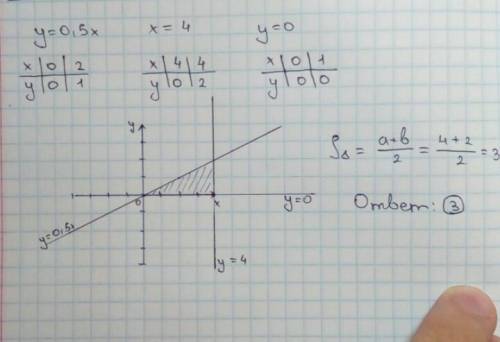 y=0,5x x=4 y=0
x | 0 | 2 x | 4 | 4 x | 0 | 1
y | 0 | 1 y | 0 | 2 y | 0 | 0
y
S△ = a+b/2 = 4+2/2 = 3
0 x y=0
Ответ: 3
y=0,5x
y=4